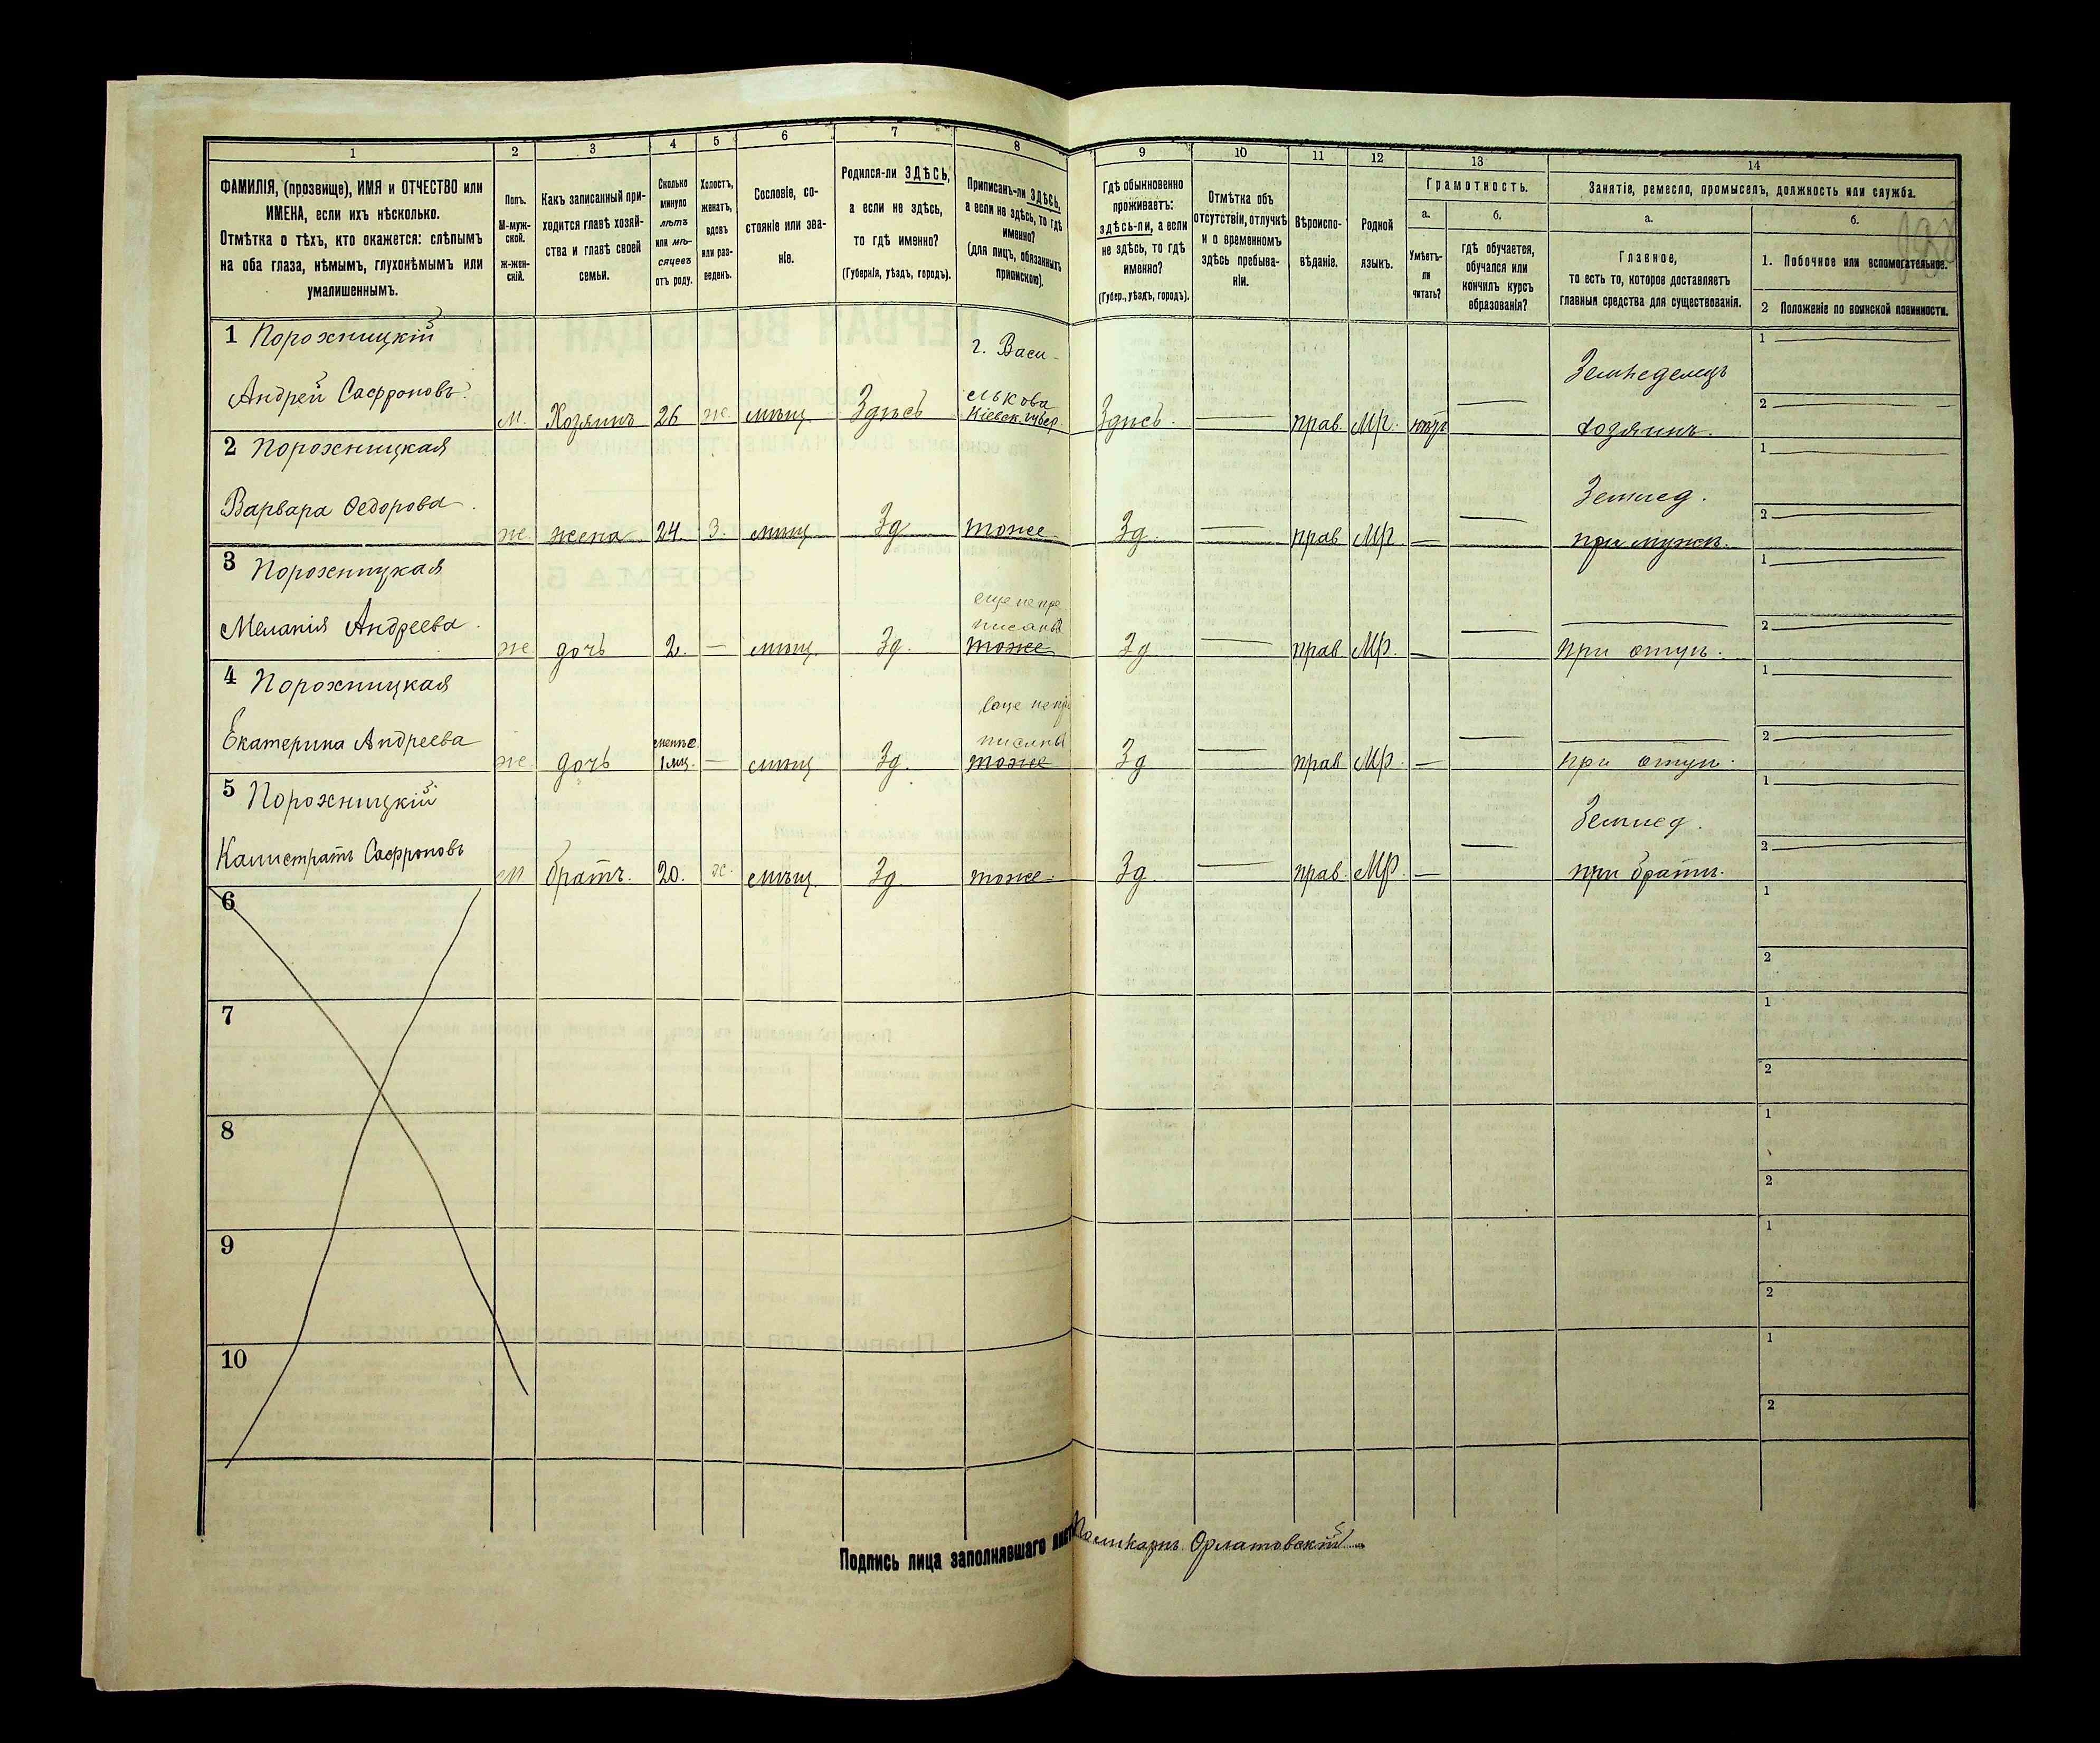 1 2 3 4 5 6 7 8 9 10 11 12 13 14
ФАМИЛІЯ, (прозвище), ИМЯ и ОТЧЕСТВО или
ИМЕНА, если ихъ нѣсколько.
Отмѣтка о тѣхъ, кто окажется: слѣпымъ
на оба глаза, нѣмымъ, глухонѣмымъ или
умалишеннымъ.
Полъ.
М-муж-
ской.
Ж-жен-
скій.
Какъ записанный при-
ходится главѣ хозяй-
ства и главѣ своей
семьи.
Сколько
минуло
лѣтъ
или мѣ-
сяцевъ
отъ роду.
Холостъ,
женатъ,
вдовъ
или раз-
веденъ.
Сословіе, со-
стояніе или зва-
ніе.
Родился-ли ЗДѢСЬ,
а если не здѣсь,
то гдѣ именно?
(Губернія, уѣздъ, городъ).
Приписанъ-ли ЗДѢСЬ,
а если не здѣсь, то гдѣ
именно?
(для лицъ, обязанныхъ
припискою).
Гдѣ обыкновенно
проживаетъ:
здѣсь-ли, а если
не здѣсь, то гдѣ
именно?
(Губер., уѣздъ, городъ).
Отмѣтка объ
отсутствіи, отлучкѣ
и о временномъ
здѣсь пребыва-
ніи.
Вѣроиспо-
вѣданіе.
Родной
языкъ.
Грамотность.
а.
Умѣетъ-
ли
читать?
б.
гдѣ обучается,
обучался или
кончилъ курсъ
образованія?
Занятіе, ремесло, промыселъ, должность или служба.
а.
Главное,
то есть то, которое доставляетъ
главныя средства для существованія.
б.
1. Побочное или вспомогательное.
2 Положеніе по воинской повинности.
1 Порохницкій
Андрей Сафроновъ
М. Хозяинъ 26 ж. мѣщ. Здѣсь
г. Васи-
лькова
Кіевск. губер.
Здѣсь. прав. Мр.
Земледелецъ
хозяинъ.
1
2
2 Порохницкая
Варвара Федорова
ж. жена 24. З. мѣщ. Зд тоже Зд. прав Мр —
Землед.
при мужѣ.
1
2
3 Порохницкая
Меланія Андреева
ж дочь 2. — мѣщ. Зд.
еще не при
писаны
тоже
Зд прав Мр. —
при отцѣ.
1
2
4 Порохницкая
Екатерина Андреева
ж. дочь
менѣе
1 мц.
— мѣщ Зд.
еще непри
писаны
тоже
Зд прав Мр. —
при отцѣ.
1
2
5 Порохницкій
Калистратъ Сафроновъ
М братъ. 20. х. мѣщ. Зд. тоже. Зд прав. Мр. —
Землед.
при братѣ.
1
2
6
1
2
7
1
2
8
1
2
9
1
2
10
1
2
Подпись лица заполнявшаго листъ Поликарпъ Орлатовскій